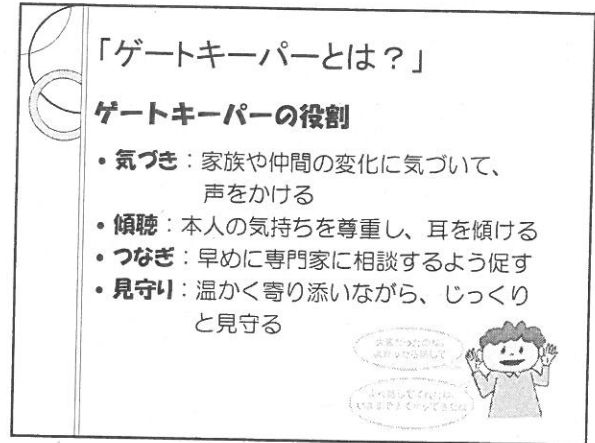 「ゲートキーパーとは？」
ゲートキーパーの役割
• 気づき：家族や仲間の変化に気づいて、
声をかける
• 傾聴：本人の気持ちを尊重し、耳を傾ける
• つなぎ：早めに専門家に相談するよう促す
• 見守り：温かく寄り添いながら、じっくり
と見守る